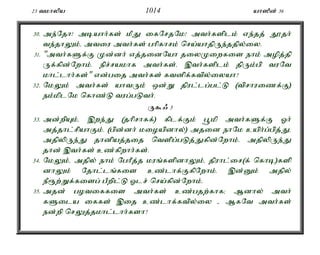 23 வமாலிய 1014 யாஸீன் 36
30. அந்தோ! அடியார்கள் மீது கைசேதமே! அவர்களிடம் எந்தத் தூதர் வந்தாலும், அவரை அவர்கள் பரிகாசம் செய்யாதிருந்ததில்லை.
31. "அவர்களுக்கு முன்னர் எத்தனையோ தலைமுறைகளை நாம் அழித்தி ருக்கின்றோம். நிச்சயமாக அவர்கள், இவர்களிடம் திரும்பி வரவே மாட்டார்கள்" என்பதை அவர்கள் கவனிக்கவில்லையா?
32. மேலும் அவர்கள் யாவரும் ஒன்று திரட்டப்பட்டு (விசாரணைக்கு) நம்மிடமே கொண்டு வரப்படுவர்.
ருகூஃ 3
33. அன்றியும், இறந்து (தரிசாகக்) கிடக்கும் பூமி அவர்களுக்கு ஓர் அத்தாட்சியாகும். (பின்னர் மழையினால்) அதனை நாமே உயிர்ப்பித்து, அதிலிருந்து தானியத்தை வெளிப்படுத்துகின்றோம். அதிலிருந்து தான் இவர்கள் உண்கிறார்கள்.
34. மேலும், அதில் நாம் பேரீத்த மரங்களினாலும், திராட்சை(க் கொடி)களி னாலும் தோட்டங்களை உண்டாக்குகிறோம். இன்னும் அதில் நீரூற்றுக்களைப் பீறிட்டு ஓடச் செய்கின்றோம்.
35. அதன் பழவகைகளை அவர்கள் உண்பதற்காக; ஆனால் அவர் களுடைய கைகள் இதை உண்டாக்கவில்லை - ஆகவே அவர்கள் நன்றி செலுத்தமாட்டார்களா?